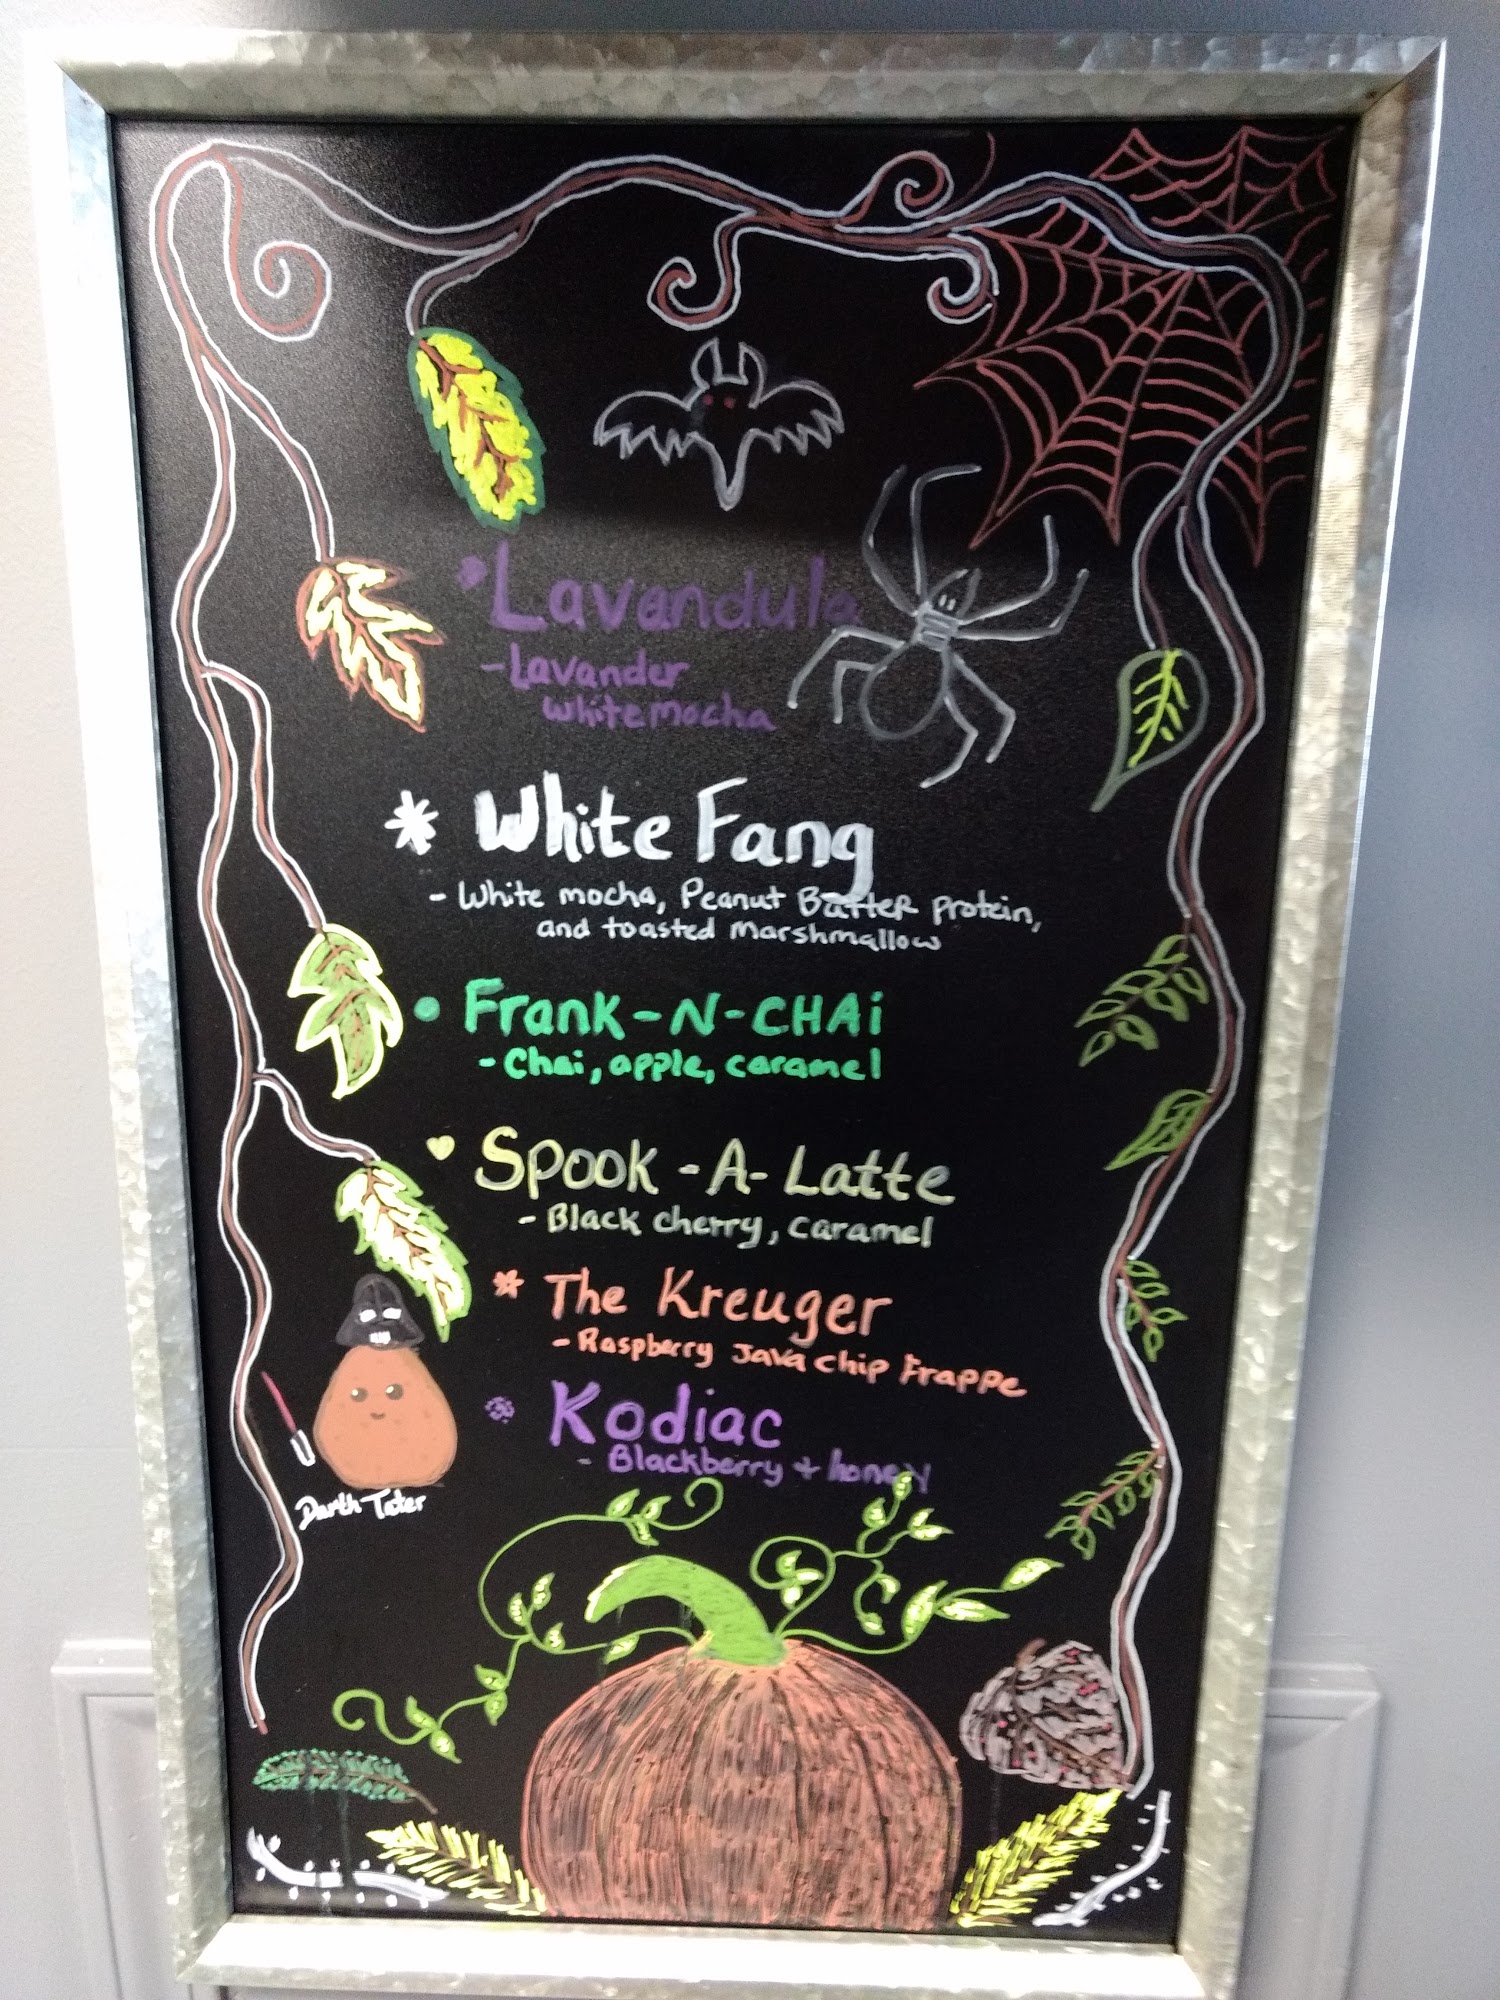 Lavandula
- Lavander
white mocha
* White Fang
- White mocha, Peanut Butter protein,
and toasted Marshmallow
• Frank-N-CHAi
- Chai, apple, caramel
♥ Spook-A-Latte
- Black cherry, caramel
* The Kreuger
- Raspberry Java chip Frappe
Kodiac
- Blackberry + honey
Darth Tater